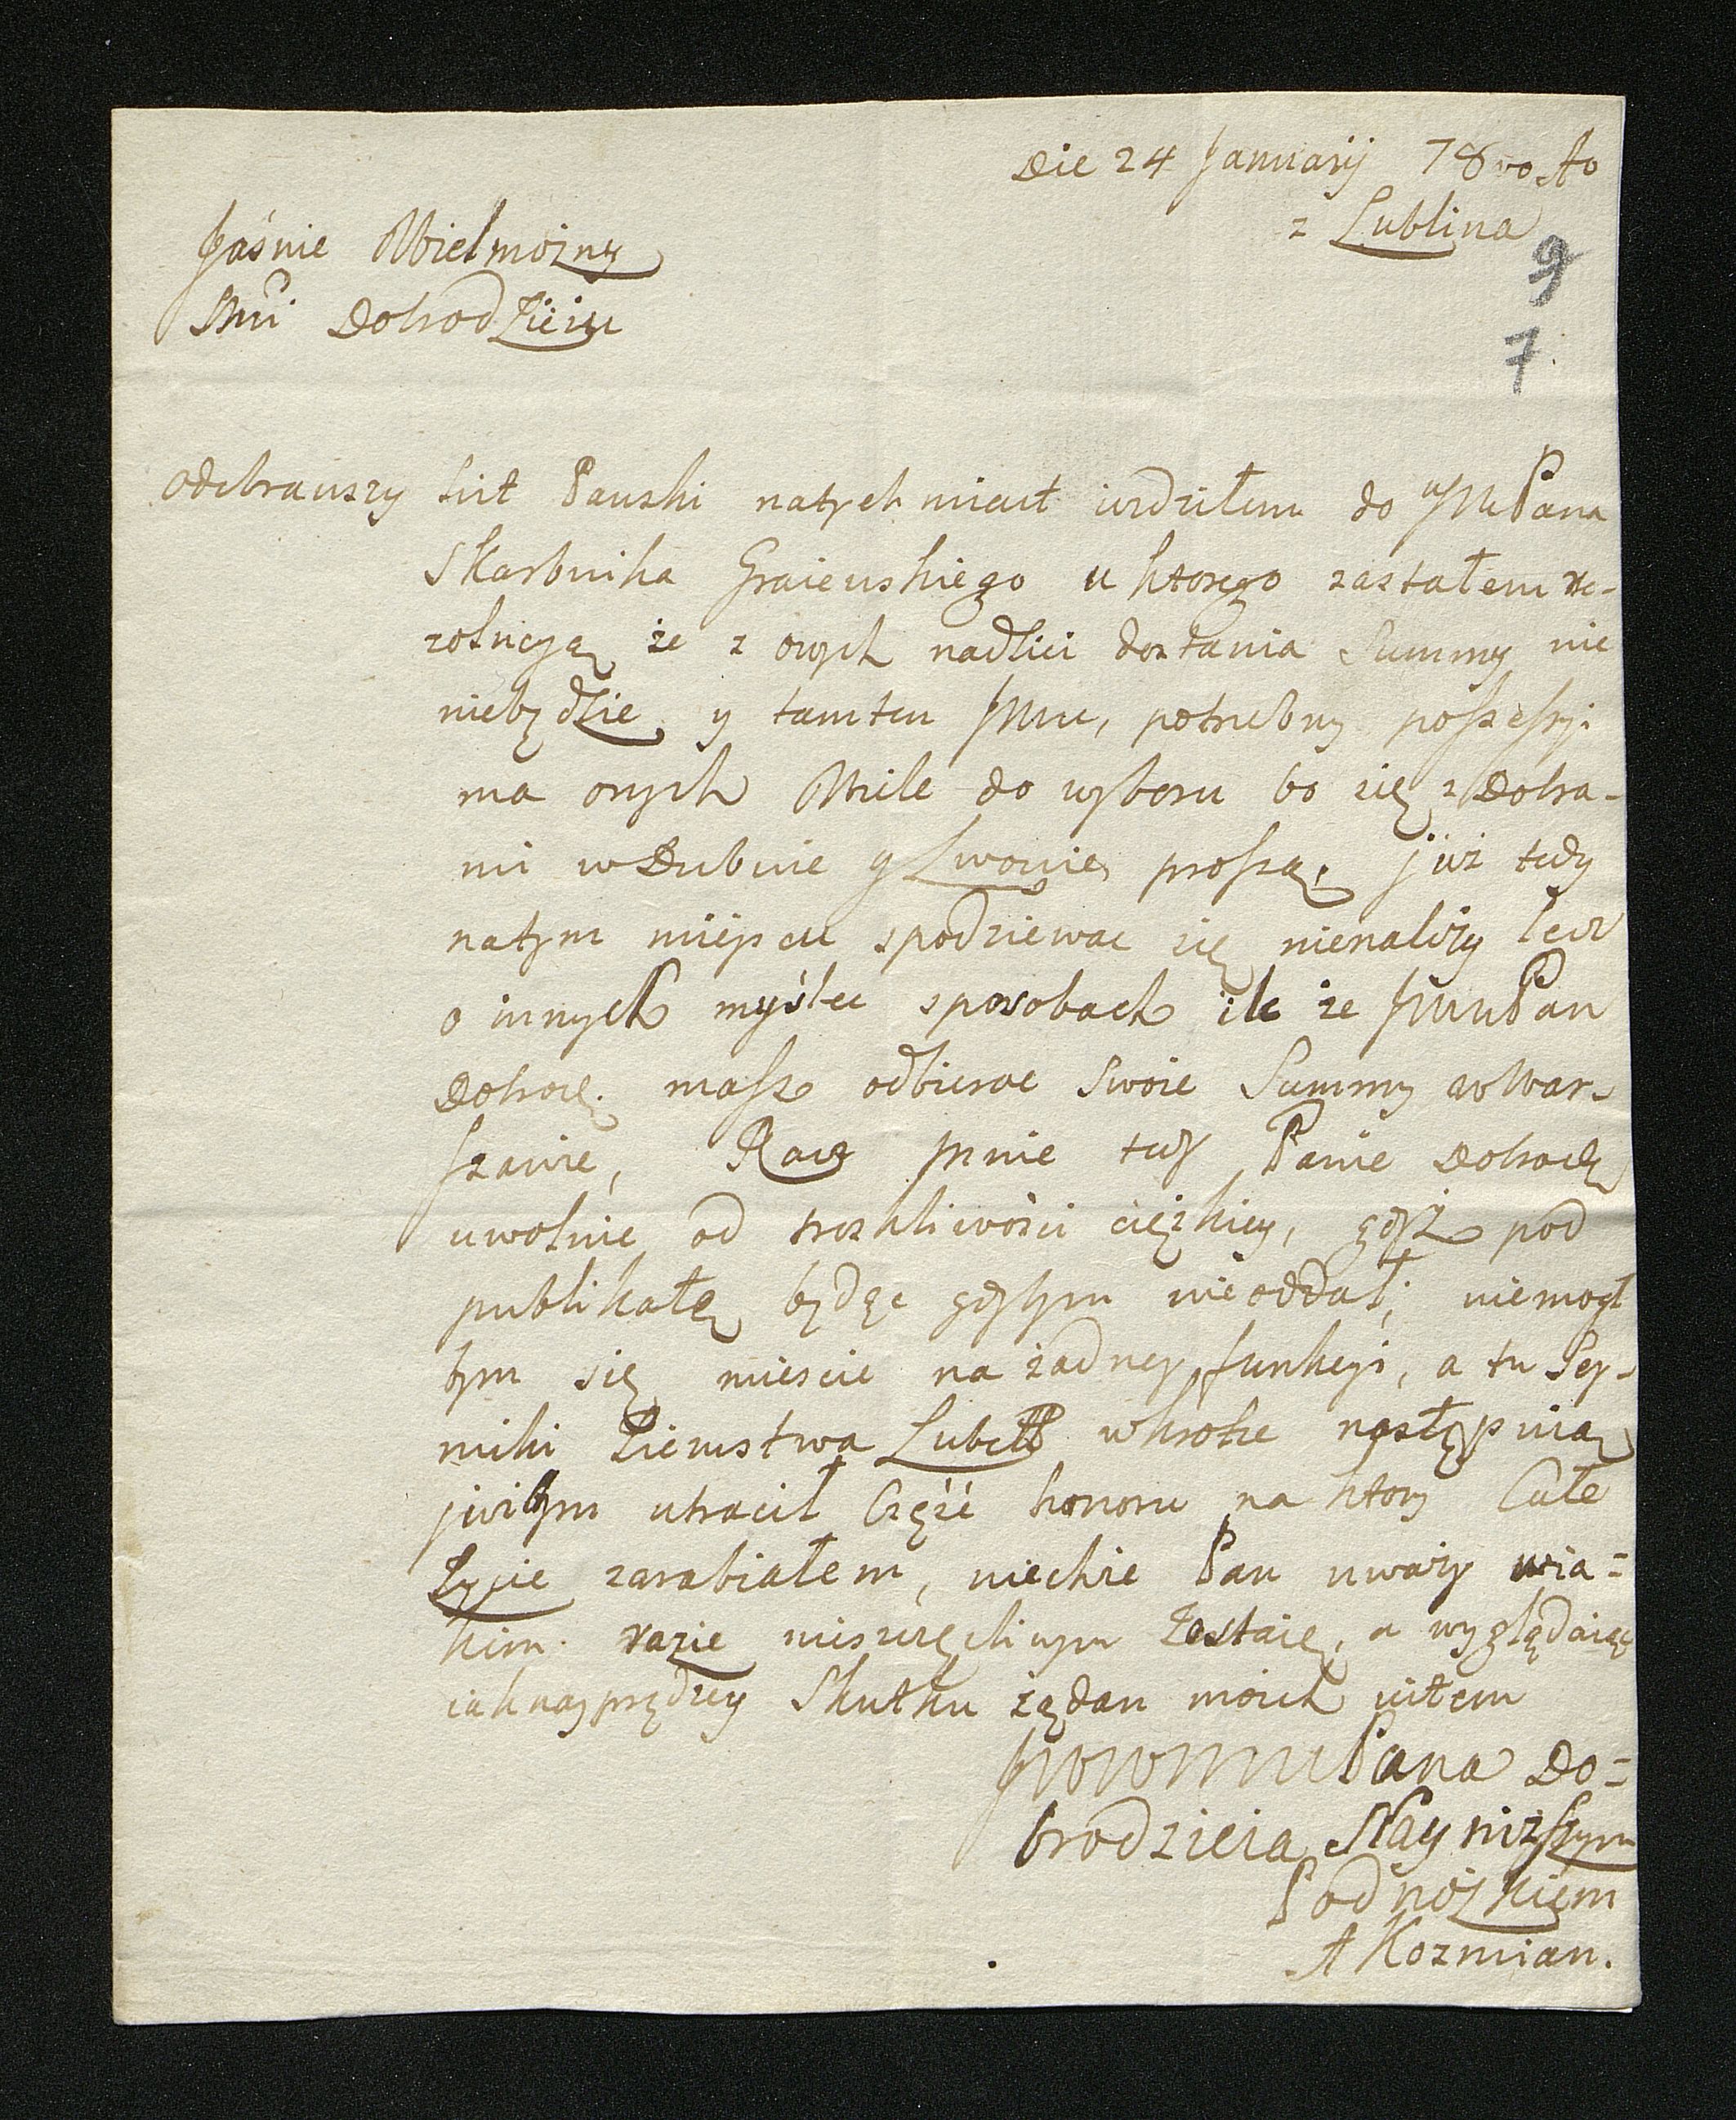 Die 24 Januarij 78vo Ao
z Lublina
9
7
Jaśnie Wielmożny
Mci Dobrodzieiu
Odebrawszy list Pański natychmiast iezdziłem do JM Pana
Skarbnika Graiewskiego u ktorego zastałem re-
zolucyą że z onych nadziei dostania Summy nie
niebędzie y tamten Jmc, potrzebny poszessyi
ma onych Wiele do wyboru bo się z Dobra-
mi w Dubnie y Lwowie proszą, już tedy
natym mieyscu spodziewac się nienależy lecz
o innych myślec sposobach ile że Pan
Dobrodz. masz odbierac swoie Summy w War-
szawie, Racz mnie tedy Panie Dobrodz
uwolnic od troskliwości cięzkiey, gdyż pod
publikatę będąc gdybym nieoddał, niemogł
bym się miescic na żadney funkcyi, a tu Sey-
miki Ziemstwa Lubel wkrotce następuią
y bym utracił Część honoru na ktory Całe
Życie zarabiałem, niechże Pan uważy w ia-
kim razie nieszczęśliwym Zostaię, a wyglądaiąc
iak nayprędzey Skutku żądan moich iestem
JWWM Pana Do-
brodzieia Nayniższym
Podnóżkiem
A Kozmian.